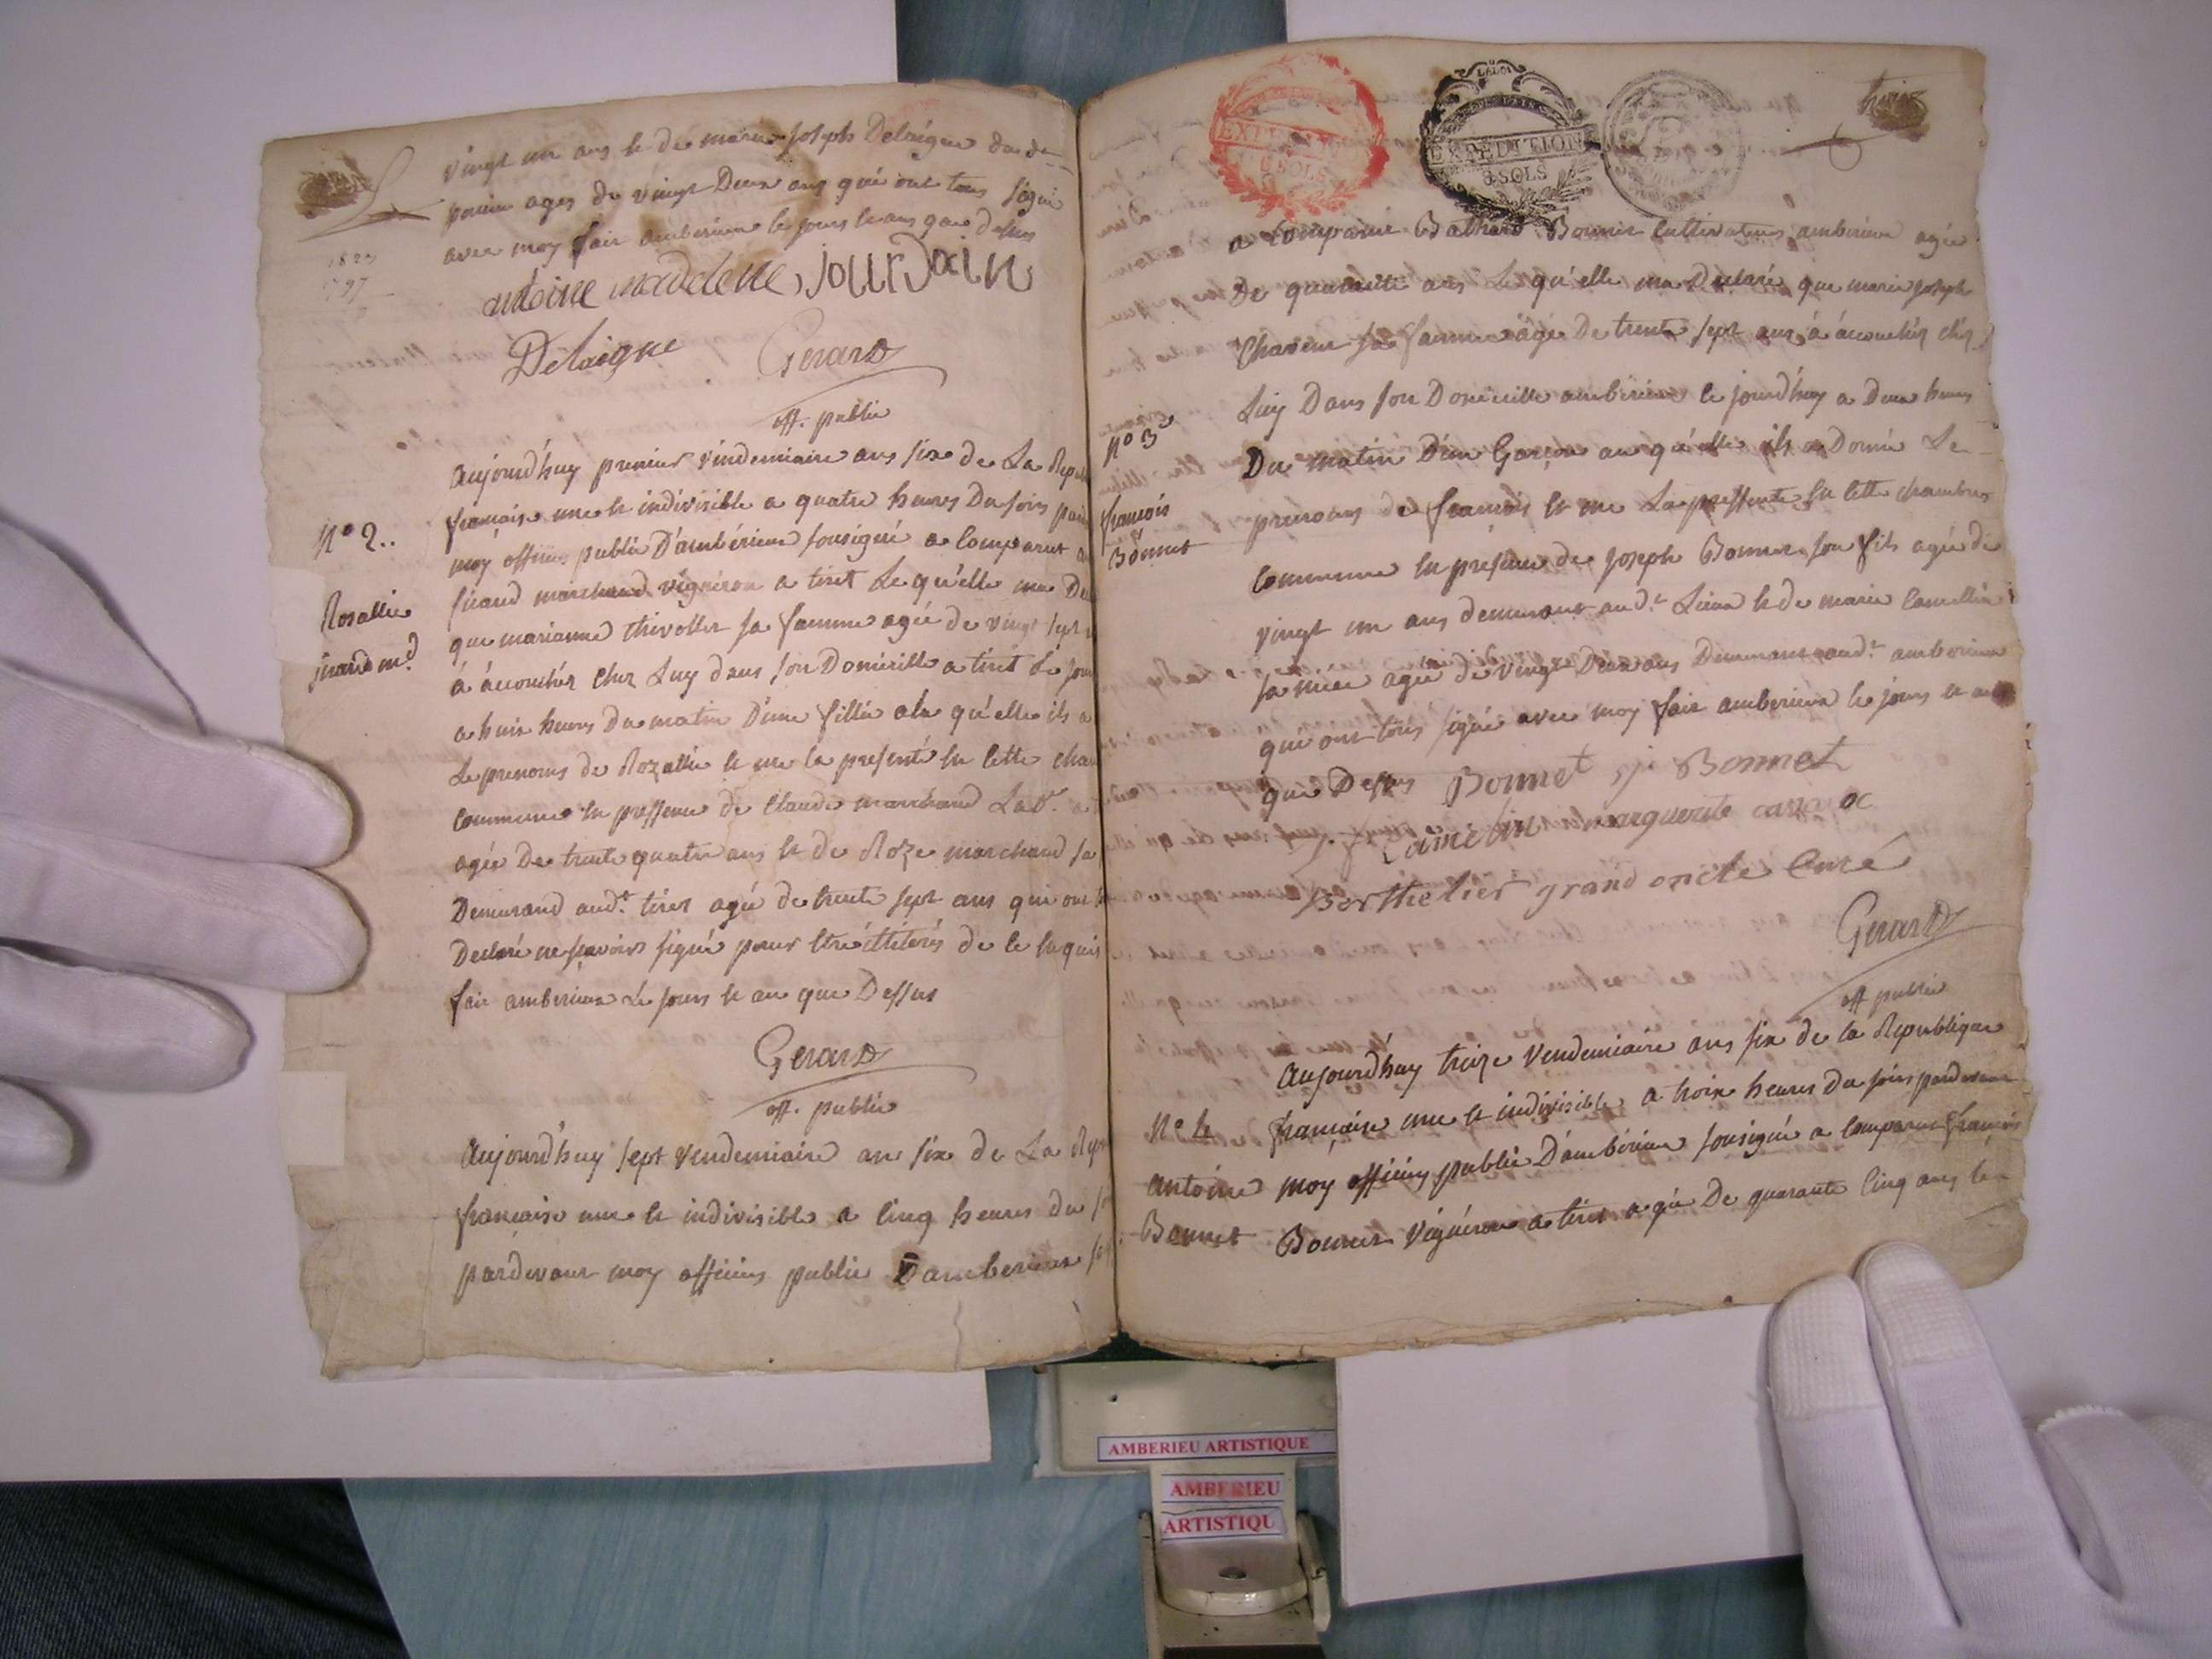 vingt un ans et de marie Joseph Delaigue du dt
pouvin ages de vingt Deux ans qui ont tous signé
avec moy fait amberieux le jours et ans que dessus
antoine madelene jourdain
Delaigue Gerard
off. public
N° 2..
Rosallie
Girand md
aujourd'huy premier vindemiaire ans six de La Repu
française une et indivisible a quatre heures du soirs par
moy officies public D'ambérieux sousigné a Comparut
Girand marchand vigneron a tiret Le qu'elle ma De
que marianne thivollet sa famme agée de vingt sept
á áccouchér chez Luy dans son Domicille a tiret Le jour
a huit heures du matin D'une fillie a la qu'elle ils a
Le prenoms de Rozallie et me la presenté en cette cham
Commune en pressence de Claude marchand Labr. a
agée De trente quatre ans et de Roze marchand sa
Demeurand audt. tiret agée de trente sept ans qui ont
Declaré ne savoirs signé pour etre illiterés de ce enquis
fait amberieux Le jours et an que Dessus
Gerard
off. public
Aujourd'huy sept vendemiaire an six de La Repu
française une et indivisible a Cinq heures du s
pardevant moy officies public D'amberieux so
EXPEDITION
EXPEDITION
SOLS
a Comparut Balthard Bonnet Cultivateur amberieux agée
De quarante ans Le qu'elle ma Declaré que marie joseph
sa famme agée De trente sept ans á áccouchér chéz
Luy Dans son Domicille amberieux le jourd'huy a Deux heures
N° 3e
françois
Bonnet
Du matin D'un Garçon au qu'elle ils a Donné Le
prenoms de françois et me La pressenté en cette chambres
Commune en presence de joseph Bonnet son fils agée de
vingt un ans demeurant audt. Lieux et de marie Camellin
sa niéce agée de vingt Deux ans Demeurant audt. amberieux
qui ont tous signé avec moy fait amberieux le jours et an
que Dessus Bonnet Bonnet
Camelin marguerite
Berthelier grand oncle Curé
Gerard
off public
Aujourd'huy treize vendemiaire ans six de la Republique
N° 4
antoine
Bonnet
française une et indivisible a trois heures du soirs pardevant
moy officies public D'ambérieux sousigné a Comparut françois
Bonnet vignéron a tiret agée De quarante Cinq ans
AMBERIEU ARTISTIQUE
AMBERIEU
ARTISTIQU